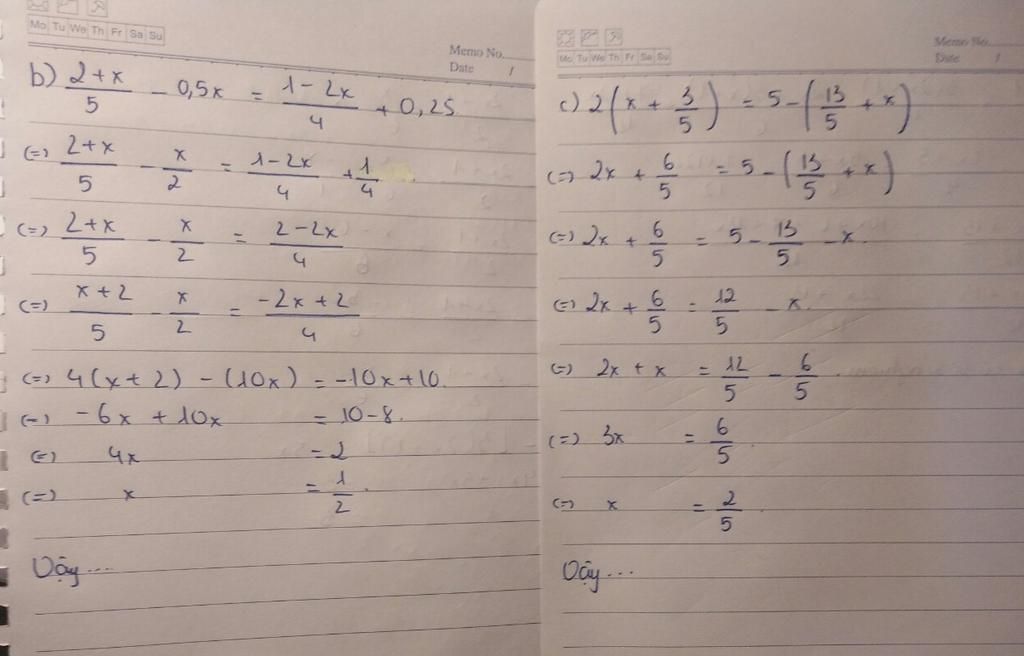 Mo Tu We Th Fr Sa Su
Memo No.
Date /
b) \frac{2+x}{5} - 0,5x = \frac{1-2x}{4} + 0,25
(=) \frac{2+x}{5} - \frac{x}{2} = \frac{1-2x}{4} + \frac{1}{4}
(=) \frac{2+x}{5} - \frac{x}{2} = \frac{2-2x}{4}
(=) \frac{x+2}{5} - \frac{x}{2} = \frac{-2x+2}{4}
(=) 4(x+2) - (10x) = -10x+10.
(=) -6x + 10x = 10-8.
(=) 4x = 2
(=) x = \frac{1}{2}.
Vậy ...
Mo Tu We Th Fr Sa Su
Memo No.
Date /
c) 2(x + \frac{3}{5}) = 5 - (\frac{13}{5} + x)
(=) 2x + \frac{6}{5} = 5 - (\frac{13}{5} + x)
(=) 2x + \frac{6}{5} = 5 - \frac{13}{5} - x.
(=) 2x + \frac{6}{5} = \frac{12}{5} - x.
(=) 2x + x = \frac{12}{5} - \frac{6}{5}.
(=) 3x = \frac{6}{5}.
(=) x = \frac{2}{5}.
Vậy ...